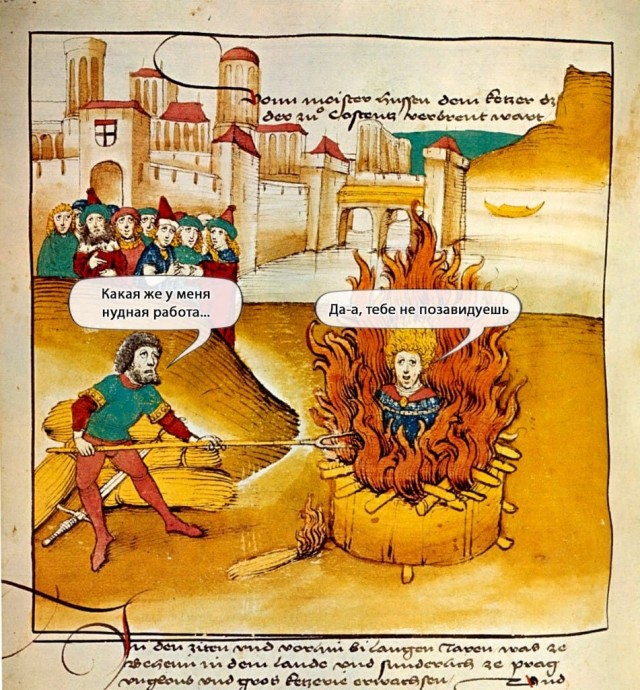 Vonn meister hussen dem ketzer dz
der zuͦ Costentz verbrent wart
Какая же у меня
нудная работа...
Да-а, тебе не позавидуешь
In den ziten vnd vorhin bi langen Jaren was ze
Behem in dem lande vnd sunderlich ze prag
vngloub vnd gros ketzerie erwachsen